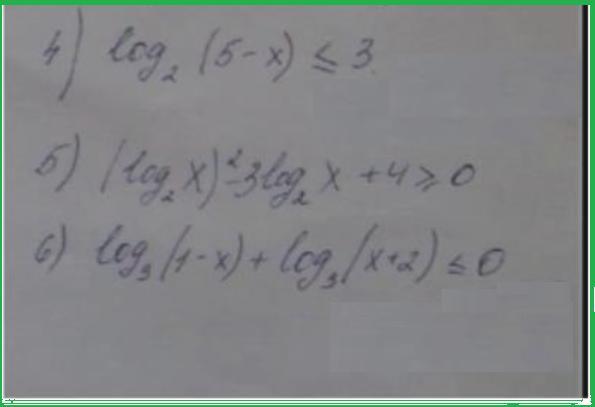 4) log₂ (5-x) ≤ 3
5) (log₂ x)² - 3log₂ x + 4 ≥ 0
6) log₃ (1-x) + log₃ (x+2) ≤ 0